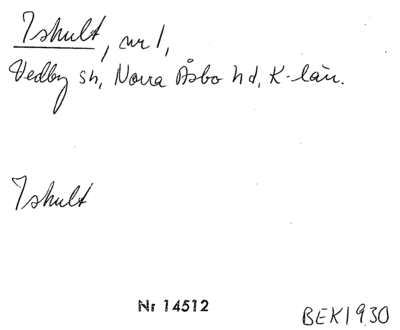 Ishult, nr 1,
Vedby sn, Norra Åsbo hd, K-län.
Ishult
Nr 14512
BEK1930